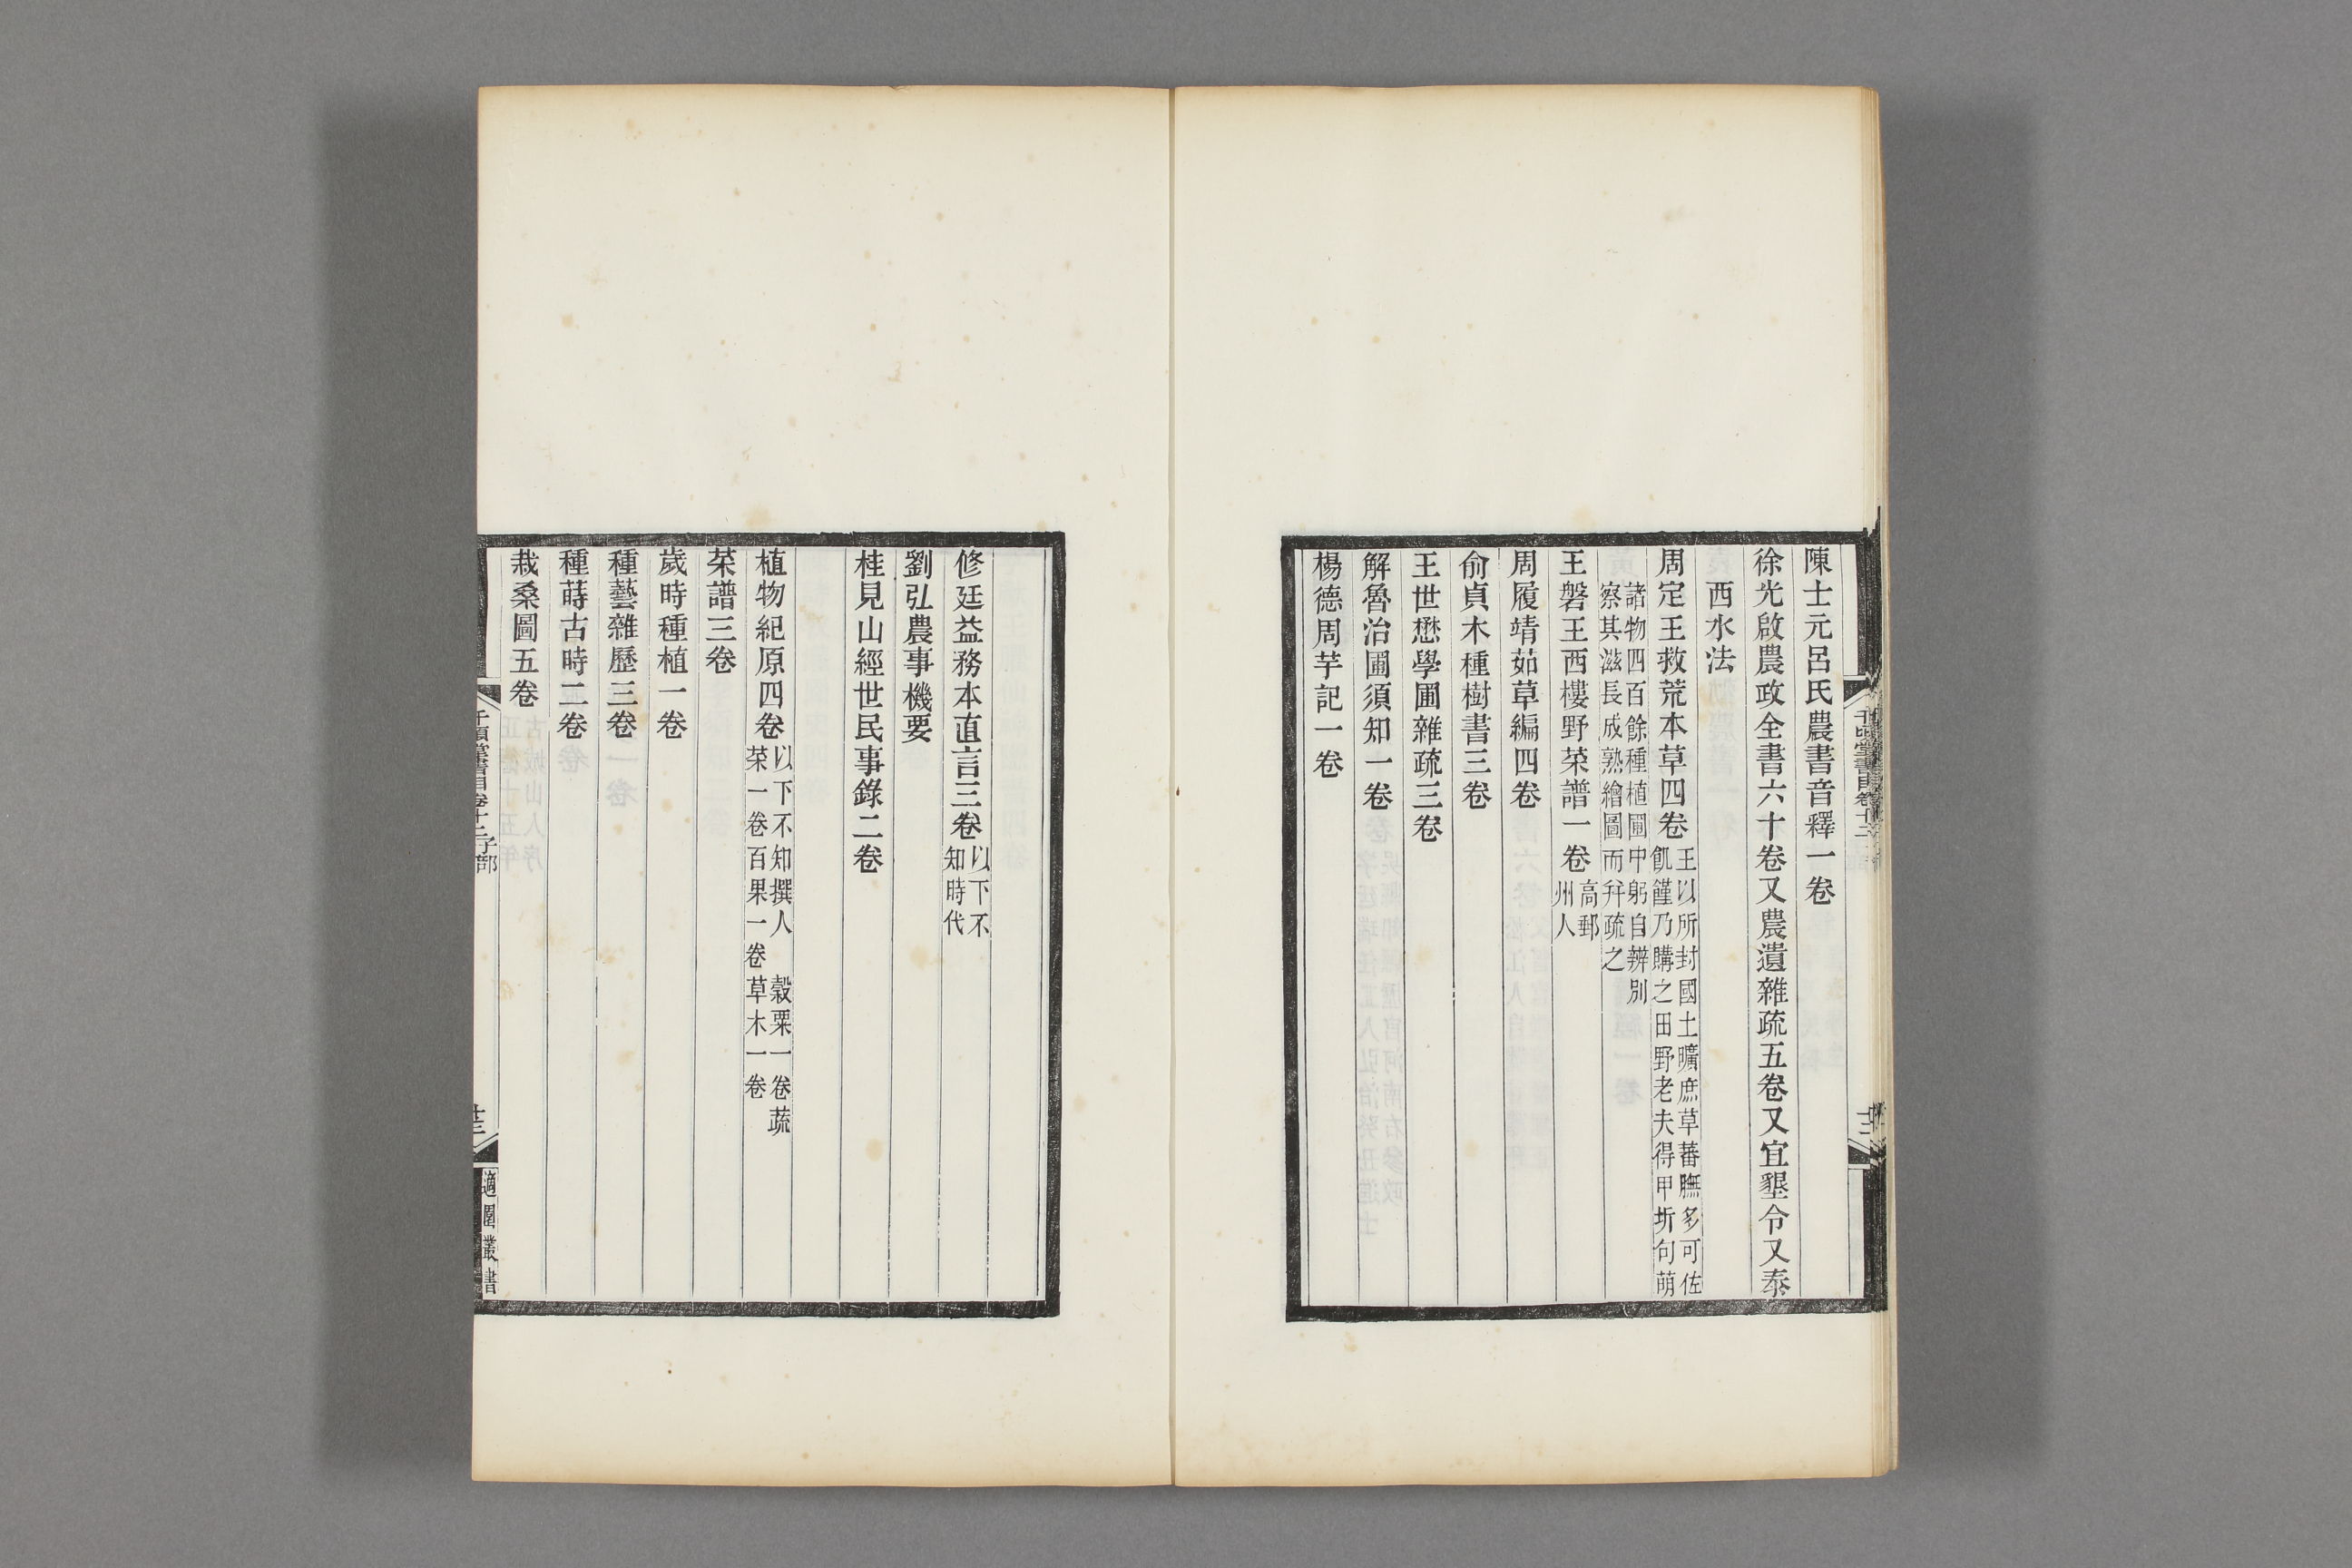 陳士元呂氏農書音釋一卷
徐光啟農政全書六十卷又農遺雜疏五卷又宜墾令又泰
西水法
周定王救荒本草四卷王以所封國土曠庶草蕃膴多可佐
飢饉乃購之田野老夫得甲坼句萌
諸物四百餘種植圃中躬自辨別
察其滋長成熟繪圖而幷疏之
王磐王西樓野菜譜一卷高郵
州人
周履靖茹草編四卷
俞貞木種樹書三卷
王世懋學圃雜疏三卷
解魯治圃須知一卷
楊德周芋記一卷
修廷益務本直言三卷以下不
知時代
劉弘農事機要
桂見山經世民事錄二卷
植物紀原四卷以下不知撰人　穀粟一卷蔬
菜一卷百果一卷草木一卷
菜譜三卷
歲時種植一卷
種藝雜歷三卷
種蒔古時二卷
栽桑圖五卷
千頃堂書目卷十二子部
十三
適園叢書